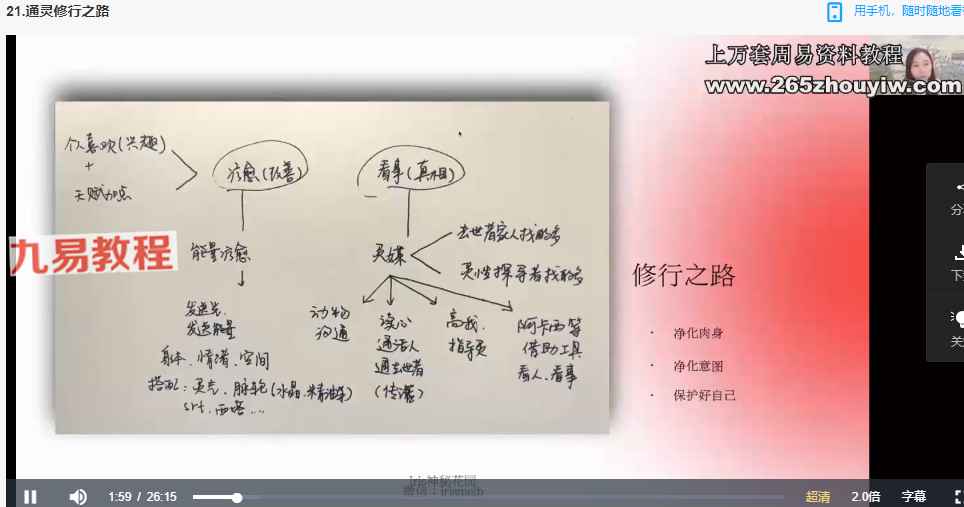 21.通灵修行之路
用手机，随时随地看
上万套周易资料教程
www.265zhouyiw.com
个人喜欢(兴趣)
+
天赋加点
疗愈(改善)
看事(真相)
能量疗愈
灵媒
去世者家人找的多
灵性探寻者找的多
发送光
发送能量
身体、情绪、空间
搭配：灵气、脉轮(水晶、精油等)
srt、西塔...
动物
沟通
读心
通活人
通去世者
(传讯)
高我、
指导灵
阿卡西等
借助工具
看人、看事
九易教程
修行之路
· 净化肉身
· 净化意图
· 保护好自己
分
下
关
Iris神秘花园
1:59 / 26:15
超清
2.0倍
字幕